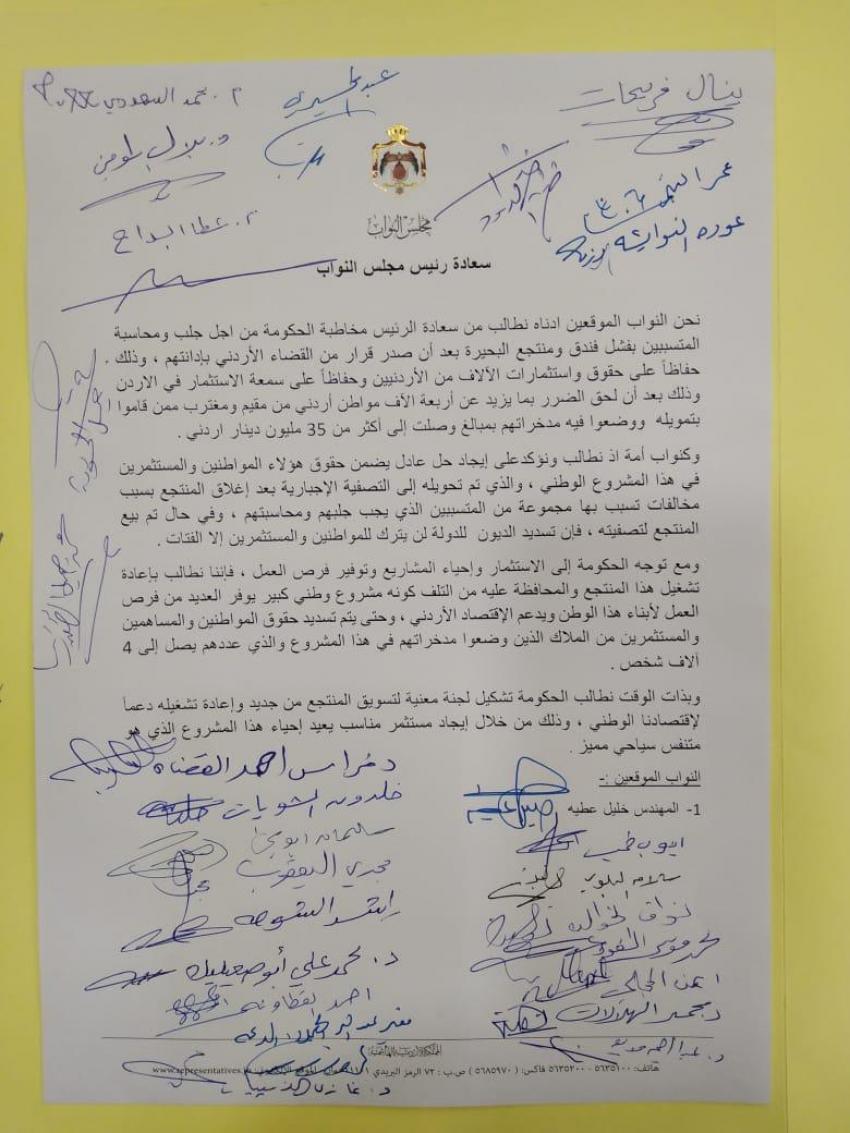 م. محمد السعودي
د. بلال المومني
م. عطا
ينال فريحات
عمر
عودة النوايشة
مجلس النواب
سعادة رئيس مجلس النواب
نحن النواب الموقعين ادناه نطالب من سعادة الرئيس مخاطبة الحكومة من اجل جلب ومحاسبة
المتسببين بفشل فندق ومنتجع البحيرة بعد أن صدر قرار من القضاء الأردني بإدانتهم ، وذلك
حفاظاً على حقوق واستثمارات الآلاف من الأردنيين وحفاظاً على سمعة الاستثمار في الاردن
وذلك بعد أن لحق الضرر بما يزيد عن أربعة الآف مواطن أردني من مقيم ومغترب ممن قاموا
بتمويله ووضعوا فيه مدخراتهم بمبالغ وصلت إلى أكثر من 35 مليون دينار اردني .
وكنواب أمة اذ نطالب ونؤكدعلى إيجاد حل عادل يضمن حقوق هؤلاء المواطنين والمستثمرين
في هذا المشروع الوطني ، والذي تم تحويله إلى التصفية الإجبارية بعد إغلاق المنتجع بسبب
مخالفات تسبب بها مجموعة من المتسببين الذي يجب جلبهم ومحاسبتهم ، وفي حال تم بيع
المنتجع لتصفيته ، فإن تسديد الديون للدولة لن يترك للمواطنين والمستثمرين إلا الفتات .
ومع توجه الحكومة إلى الاستثمار وإحياء المشاريع وتوفير فرص العمل ، فإننا نطالب بإعادة
تشغيل هذا المنتجع والمحافظة عليه من التلف كونه مشروع وطني كبير يوفر العديد من فرص
العمل لأبناء هذا الوطن ويدعم الإقتصاد الأردني ، وحتى يتم تسديد حقوق المواطنين والمساهمين
والمستثمرين من الملاك الذين وضعوا مدخراتهم في هذا المشروع والذي عددهم يصل إلى 4
ألاف شخص .
وبذات الوقت نطالب الحكومة تشكيل لجنة معنية لتسويق المنتجع من جديد وإعادة تشغيله دعماً
لإقتصادنا الوطني ، وذلك من خلال إيجاد مستثمر مناسب يعيد إحياء هذا المشروع الذي هو
متنفس سياحي مميز .
النواب الموقعين :-
1- المهندس خليل عطيه
د فراس احمد القضاه
خلدون الشويات
ايوب خميس
سليمان ابو يحيى
سلامه البلوي
مجدي اليعقوب
نواف الخوالده
راشد الشوحه
ايمن المجالي
د. محمد علي أبو صعيليك
د. عبدالرحمن
د. غازي الذنيبات
المملكة الأردنية الهاشمية
هاتف: ٥٦٣٥١٠٠ - ٥٦٣٥٢٠٠ فاكس: ( ٥٦٨٥٩٧٠ ) ص.ب : ٧٢ الرمز البريدي
www.representatives.jo